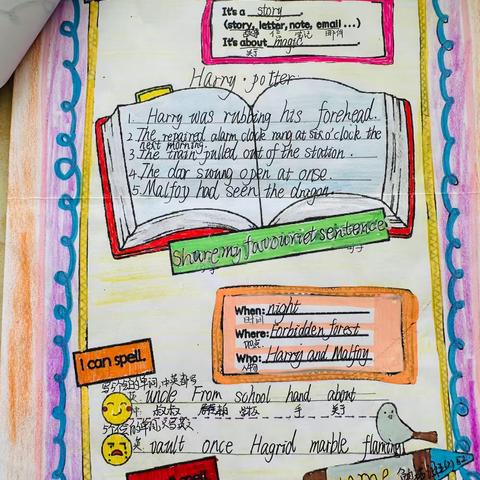 It's a story.
(story, letter, note, email...)
故事 信 笔记 邮件
It's about magic.
关于
Harry·potter
1. Harry was rubbing his forehead.
2. The repaired alarm clock rang at six o'clock the
next morning.
3. The train pulled out of the station.
4. The dor swung open at onse.
5. Malfoy had seen the dragon.
Share my favouriet sentence
句子
When: night
时间
Where: Forbidden forest
地点
Who: Harry and Malfoy
人物
I can spell.
写5个会的单词,中英
英: uncle From school hand about
中: 叔叔 学校 手 关于
5个不会的单词
英 vault once Hagrid marble